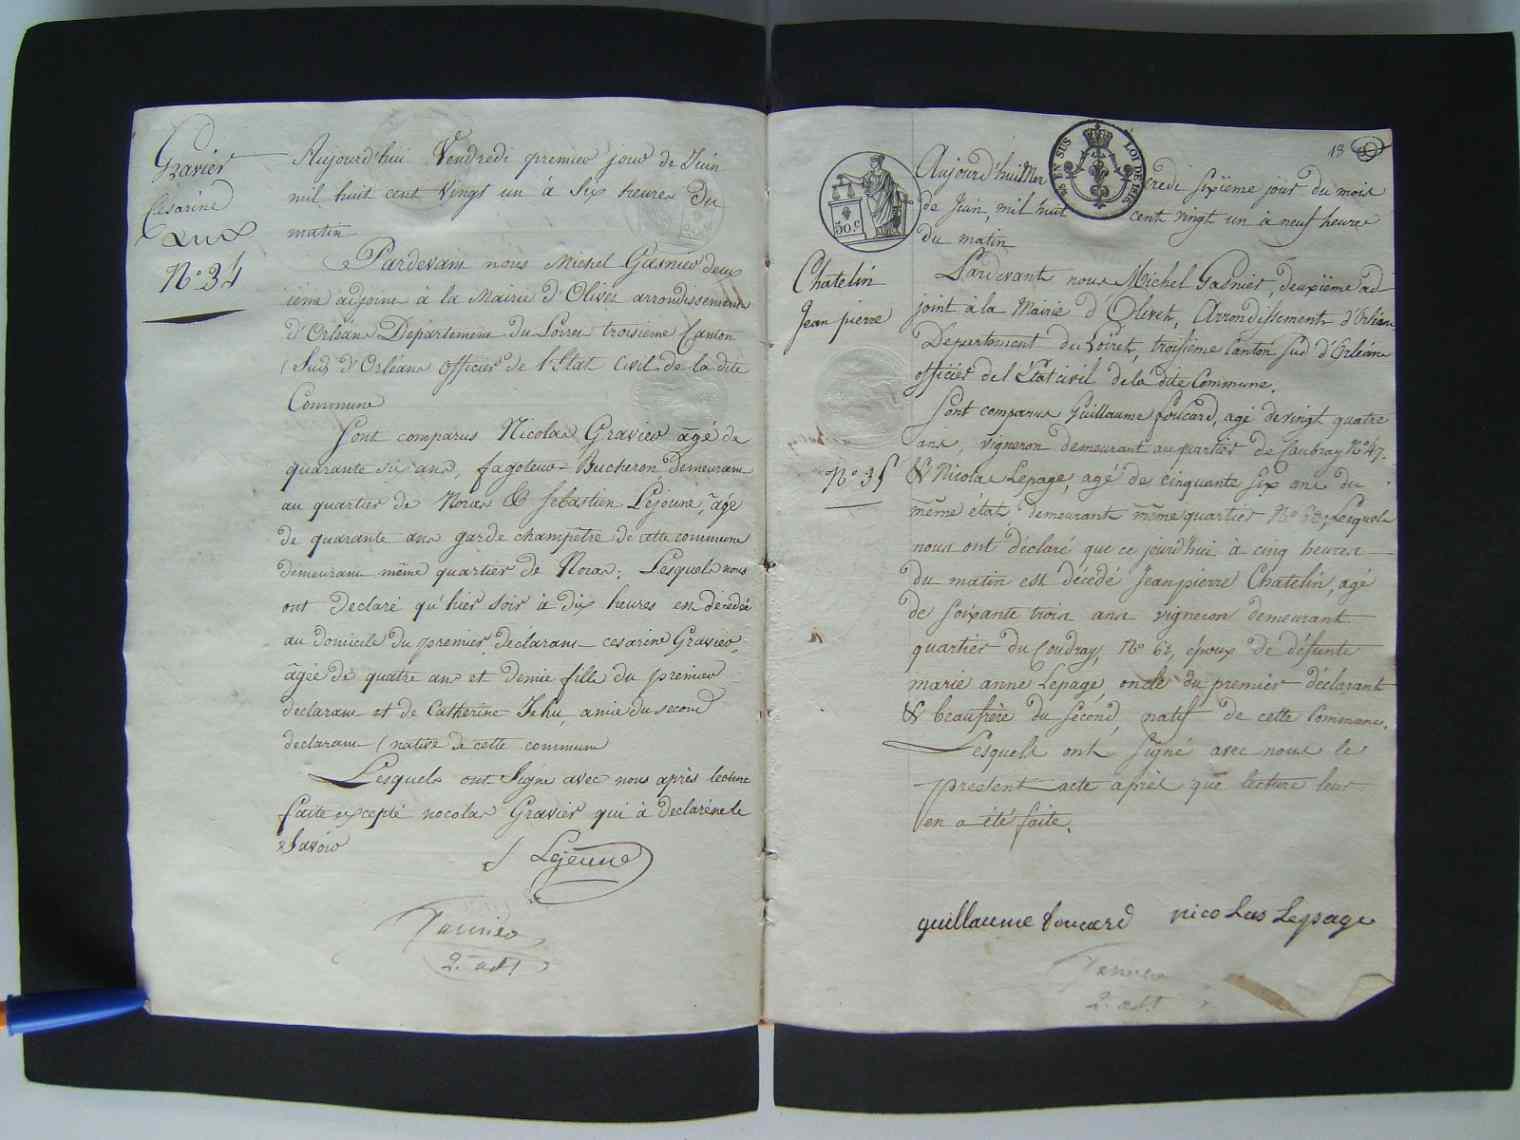 Gravier
Césarine
N° 34
Aujourd'hui Vendredi premier jour de Juin
mil huit cent Vingt un à Six heures du
matin
Pardevant nous Michel Gasnier deux
ieme adjoint à la Mairie d'Olivet arrondissement
d'Orléans Departement du Loiret troisieme Canton
Sud d'Orléans officier de l'Etat Civil de la dite
Commune
Sont comparus Nicolas Gravier âgé de
quarante six ans, fagoteur-Bucheron demeurant
au quartier de Noras & Sebastien Lejeune, âgé
de quarante ans garde champêtre de cette commune
demeurant même quartier de Noras; Lesquels nous
ont Declaré qu'hier soir à dix heures est décédée
au domicile du premier déclarant cesarine Gravier,
âgée de quatre ans et demie fille du premier
declarant et de Catherine Jehu, amie du second
declarant native de cette commune
Lesquels ont Signé avec nous après lecture
faite excepté nocolas Gravier qui à declaré ne le
Savoir
S Lejeune
Gasnier
2. adj.t
EN SUS LOI DE 1816
30 c
13
Aujourd'hui Mercredi sixième jour du mois
de Juin, mil huit cent vingt un à neuf heure
du matin
Chatelin
Jean pierre
N° 35
Pardevant nous Michel Gasnier, deuxième ad
joint à la Mairie d'Olivet, Arrondissement d'Orléans
Departement du Loiret, troisième Canton Sud d'Orléans
officier de l'Etat civil de la dite Commune.
Sont comparus Guillaume foucard, agé de vingt quatre
ans, vigneron demeurant au quartier de Caubray N° 47.
& Nicolas Lepage, agé de cinquante six ans du
même état demeurant même quartier N° Lesquels
nous ont déclaré que ce jourd'hui à cinq heures
du matin est décédé Jean pierre Chatelin, agé
de soixante trois ans vigneron demeurant
quartier du Coudray, N° 62, époux de défunte
marie anne Lepage, oncle du premier déclarant
& beaufrère du second, natif de cette Commune.
Lesquels ont signé avec nous le
present acte après que lecture leur
en a été faite.
guillaume foucard nicolas Lepage
Gasnier
2. adj.t